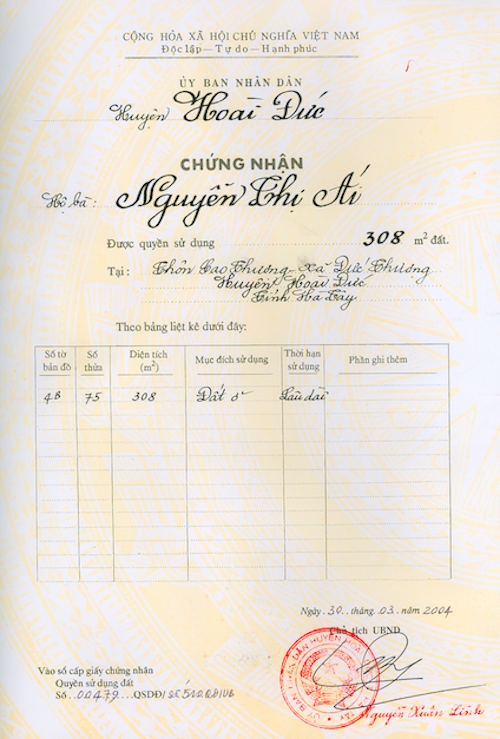 CỘNG HÒA XÃ HỘI CHỦ NGHĨA VIỆT NAM
Độc lập—Tự do—Hạnh phúc
ỦY BAN NHÂN DÂN
Huyện Hoài Đức
CHỨNG NHẬN
Hộ bà: Nguyễn Thị Ái
Được quyền sử dụng 308 m² đất.
Tại: Thôn Cao Thượng - Xã Đức Thượng
Huyện Hoài Đức
Tỉnh Hà Tây
Theo bảng liệt kê dưới đây:
Số tờ bản đồ Số thửa Diện tích (m²) Mục đích sử dụng Thời hạn sử dụng Phần ghi thêm
4B 75 308 Đất ở Lâu dài
Ngày 30 tháng 03 năm 2004
Chủ tịch UBND
Vào sổ cấp giấy chứng nhận
Quyền sử dụng đất
Số 00479 QSDĐ/
Nguyễn Xuân Lĩnh